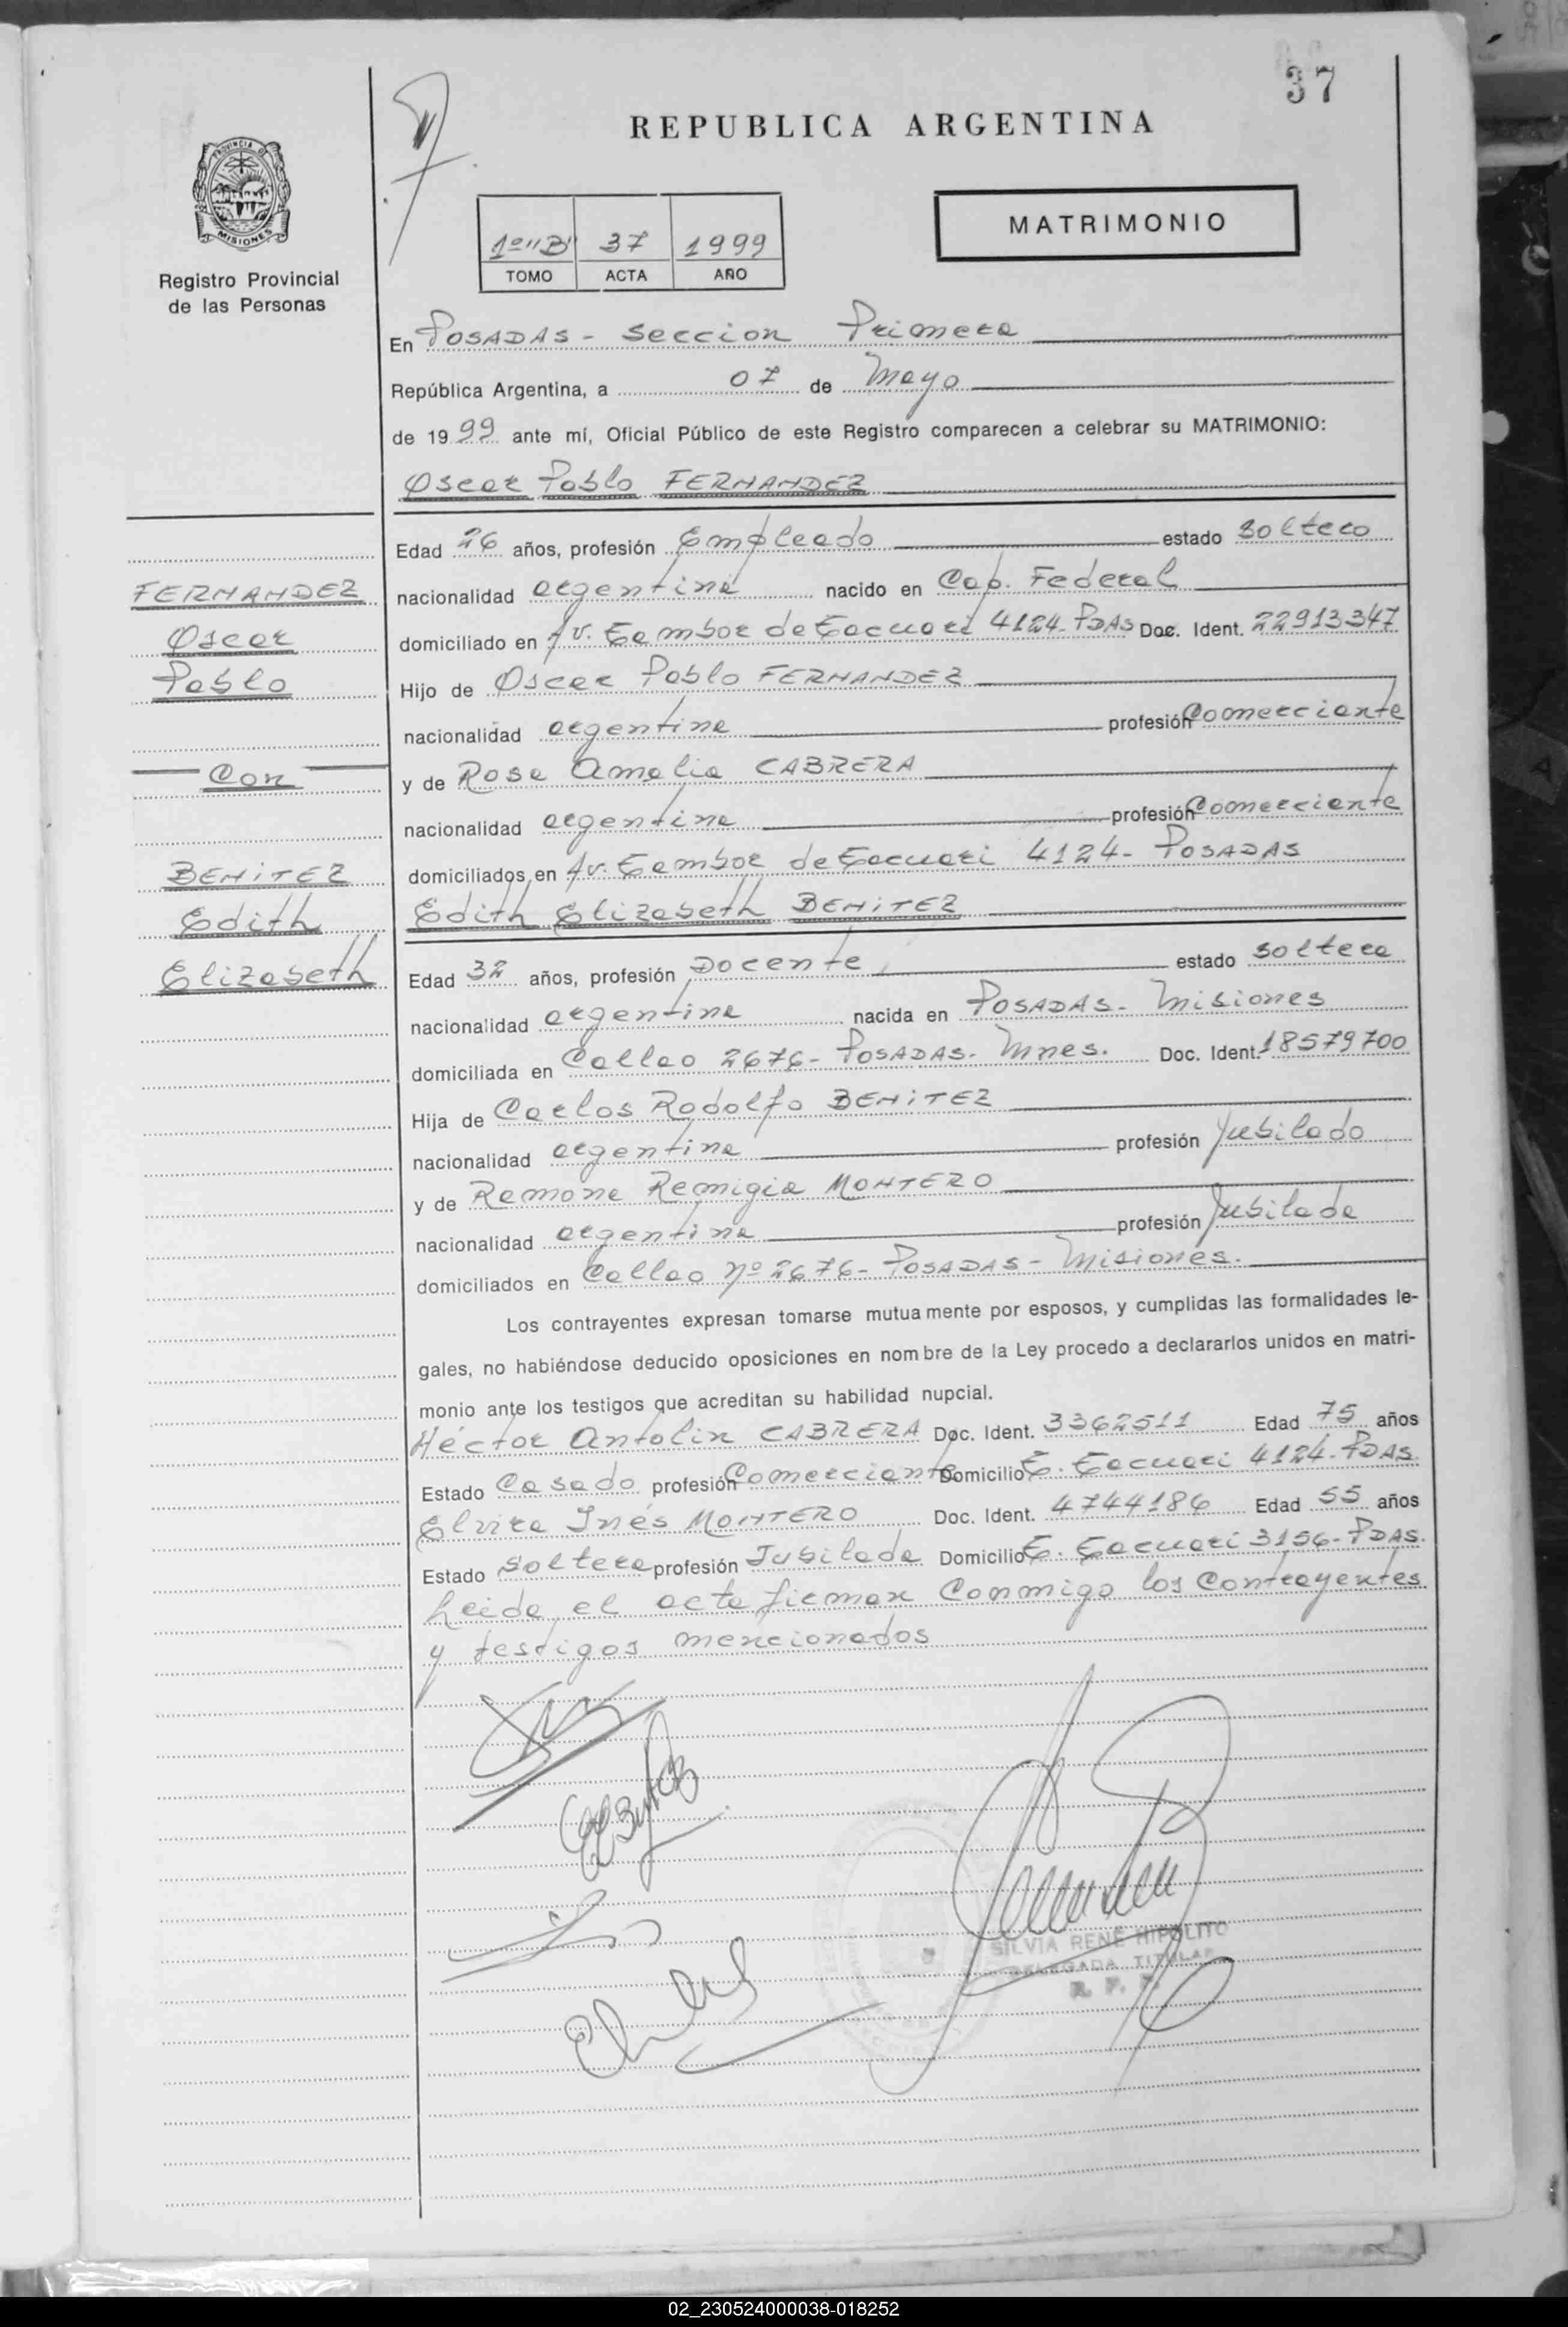 37
REPUBLICA ARGENTINA
PROVINCIA DE
MISIONES
Registro Provincial
de las Personas
MATRIMONIO
1º "B" 37 1999
TOMO ACTA AÑO
En POSADAS - Seccion Primera
República Argentina, a 07 de Mayo
de 1999 ante mí, Oficial Público de este Registro comparecen a celebrar su MATRIMONIO:
Oscar Pablo FERNANDEZ
Edad 26 años, profesión Empleado estado Soltero
FERNANDEZ
Oscar
Pablo
Con
BENITEZ
Edith
Elizabeth
nacionalidad argentina nacido en Cap. Federal
domiciliado en Av. Tambor de Tacuarí 4124-PDAS Doc. Ident. 22913347
Hijo de Oscar Pablo FERNANDEZ
nacionalidad argentina profesión Comerciante
y de Rosa Amalia CABRERA
nacionalidad argentina profesión Comerciante
domiciliados en Av. Tambor de Tacuari 4124- POSADAS
Edith Elizabeth BENITEZ
Edad 32 años, profesión Docente estado Soltera
nacionalidad argentina nacida en POSADAS- Misiones
domiciliada en Callao 2676- POSADAS- Mnes. Doc. Ident. 18579700
Hija de Carlos Rodolfo BENITEZ
nacionalidad argentina profesión Jubilado
y de Ramona Remigia MONTERO
nacionalidad argentina profesión Jubilada
domiciliados en Callao nº 2676- POSADAS - Misiones.
Los contrayentes expresan tomarse mutuamente por esposos, y cumplidas las formalidades le-
gales, no habiéndose deducido oposiciones en nombre de la Ley procedo a declararlos unidos en matri-
monio ante los testigos que acreditan su habilidad nupcial.
Héctor Antolin CABRERA Doc. Ident. 3362511 Edad 75 años
Estado Casado profesión Comerciante Domicilio T. Tacuari 4124-PDAS.
Elvira Inés MONTERO Doc. Ident. 4744186 Edad 55 años
Estado Soltera profesión Jubilada Domicilio T. Tacuari 3156-PDAS.
Leida el acta firman Conmigo los Contrayentes
y testigos mencionados
SILVIA RENÉ HIPOLITO
DELEGADA TITULAR
R. P. P.
02_230524000038-018252